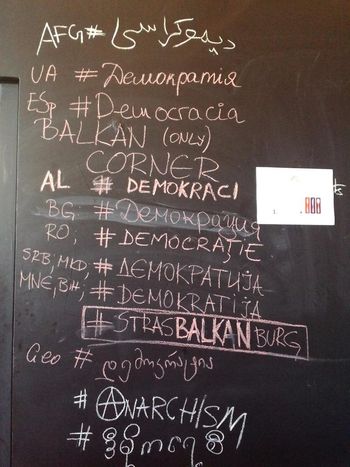 AFG # دیموکراسی
UA # Демократія
ESP # Democracia
BALKAN (ONLY)
CORNER
AL # DEMOKRACI
BG, # Демокрация
RO, # DEMOCRAȚIE
SRB, MKD, # ДЕМОКРАТИЈА
MNE, BiH, # DEMOKRATIJA
# STRASBALKANBURG
Geo # დემოკრატია
# ANARCHISM
#